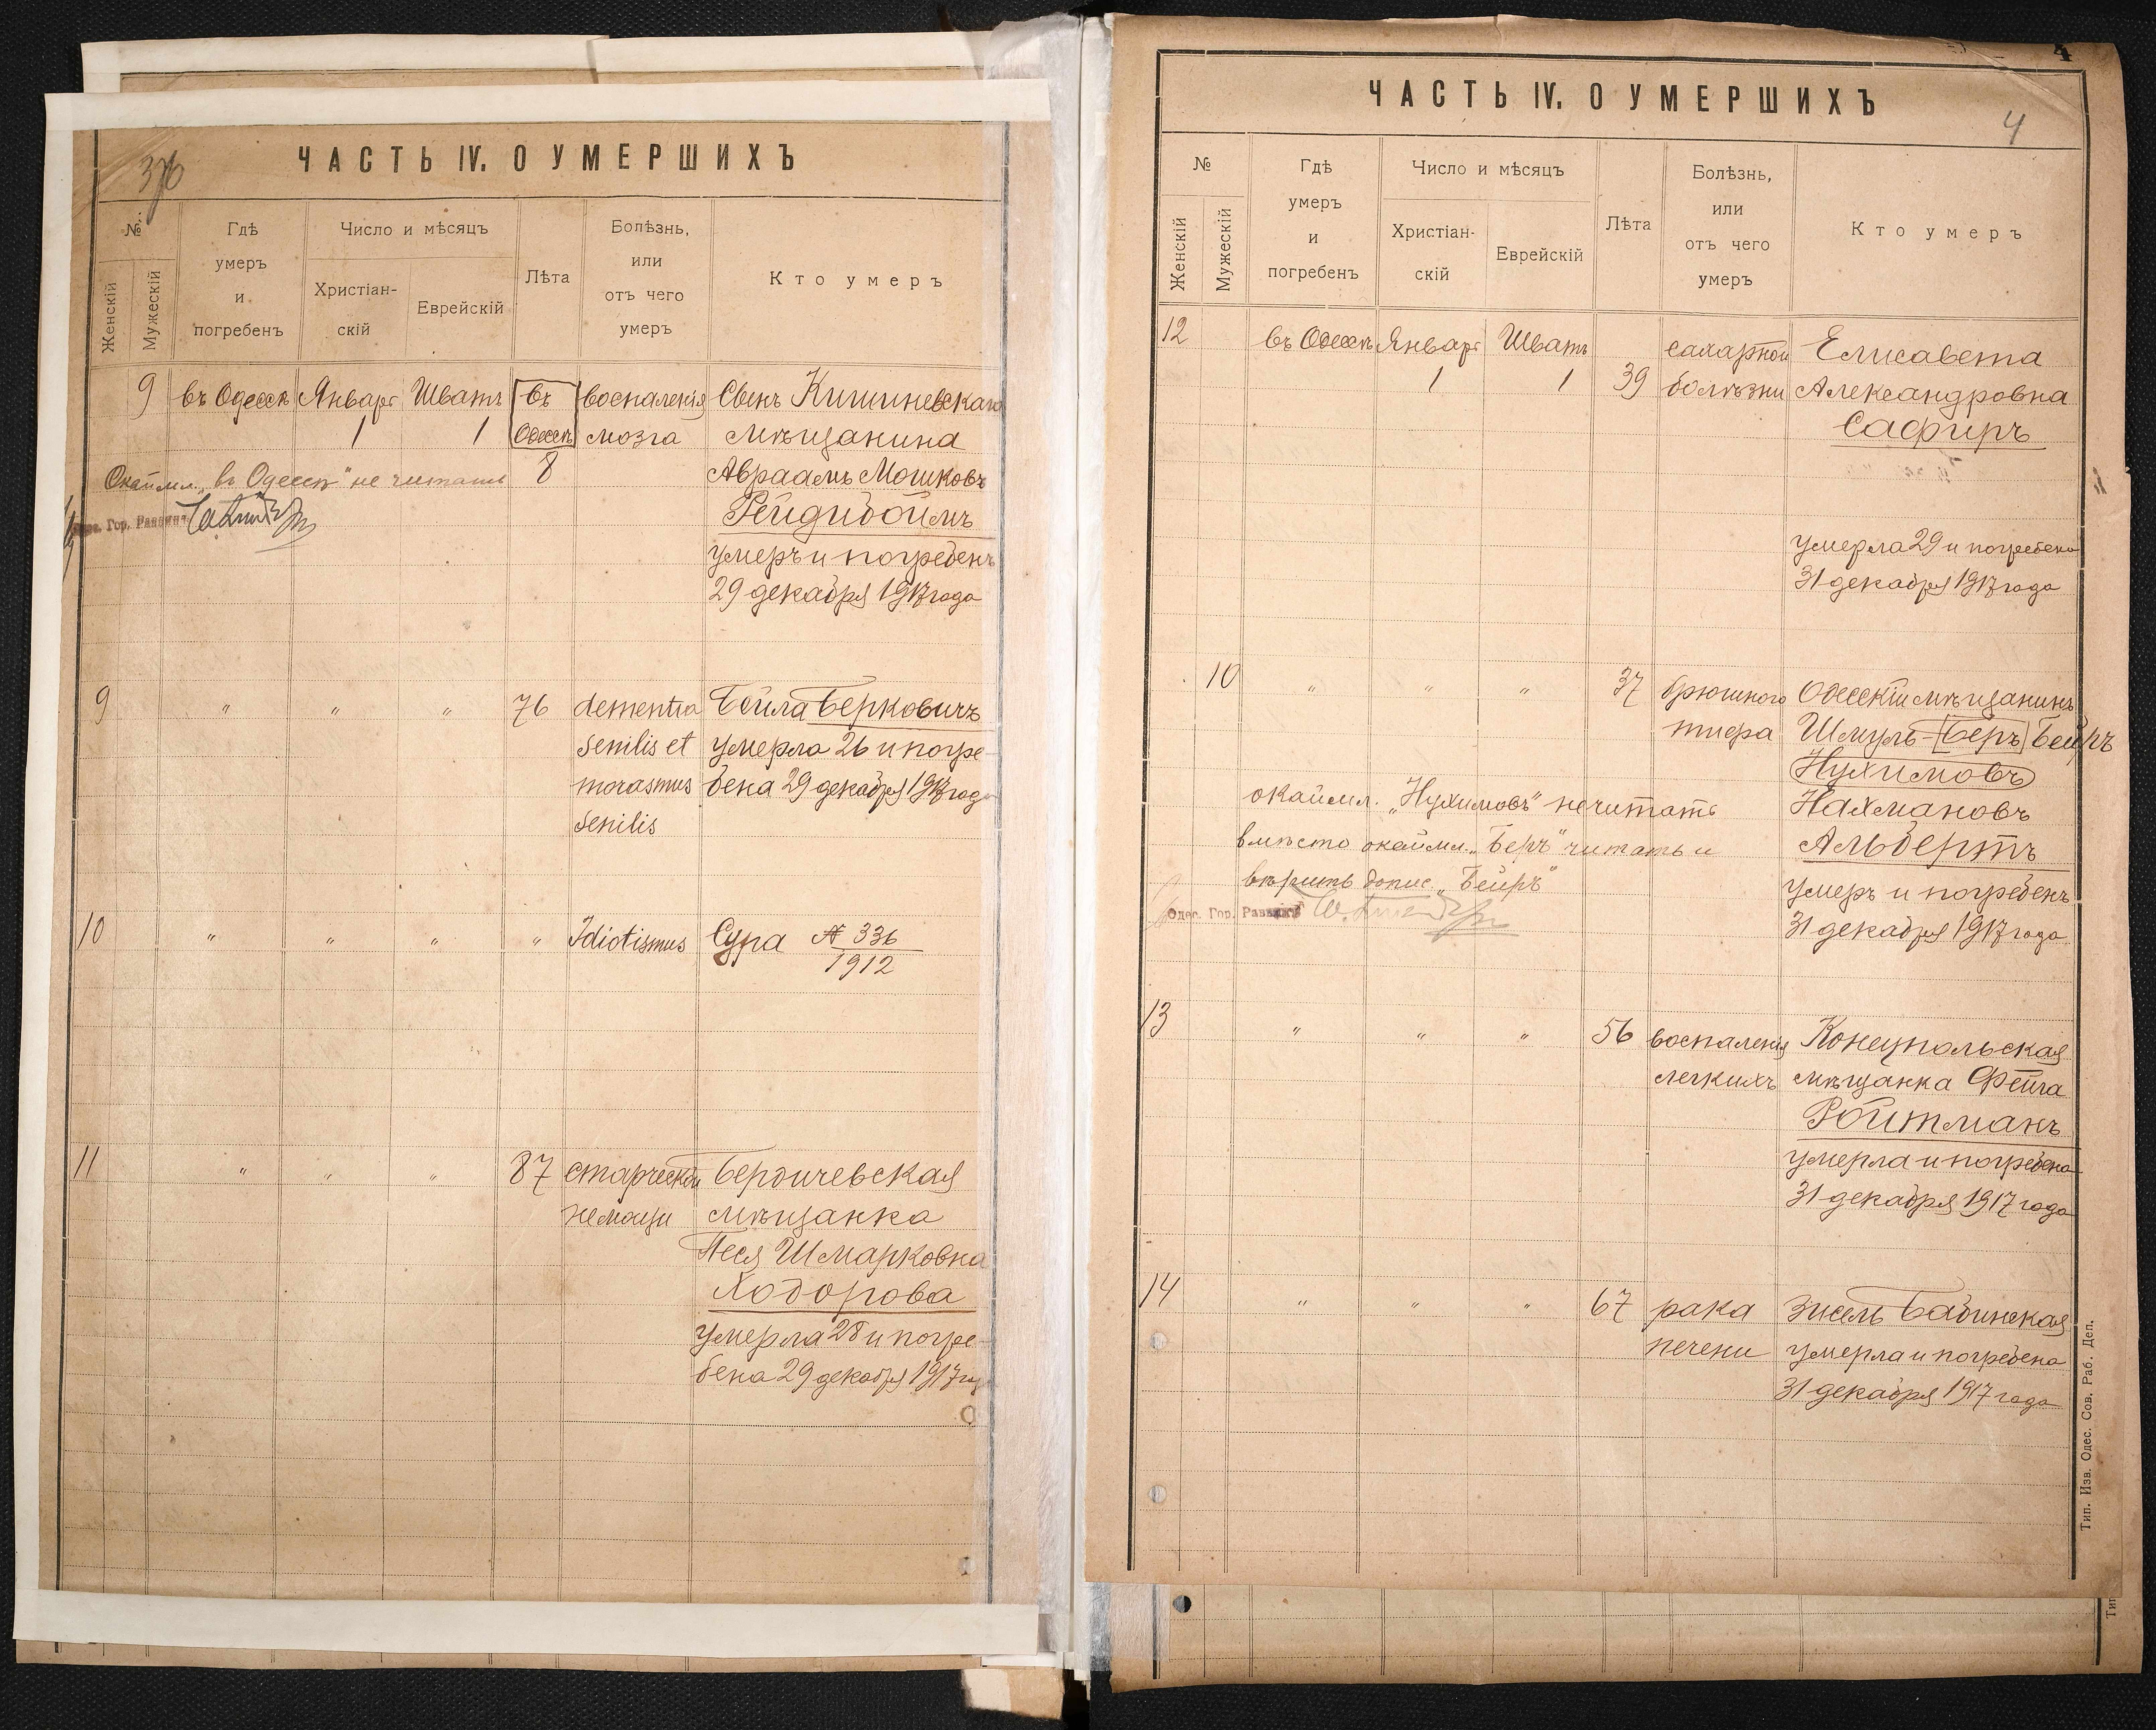 ЧАСТЬ IV. О УМЕРШИХЪ
376
№
Женскій
Мужескій
Гдѣ
умеръ
и
погребенъ
Число и мѣсяцъ
Христіан-
скій
Еврейскій
Лѣта
Болѣзнь,
или
отъ чего
умеръ
Кто умеръ
9 въ Одессѣ Январь Шватъ въ воспаленія Сынъ Кишиневскаго
1 1 Одессѣ мозга мѣщанина
Окаймл. „въ Одессѣ" не читать 8 Авраамъ Мошковъ
Одес. Гор. Раввинъ
Рейдибоймъ
умеръ и погребенъ
29 декабря 1917 года
9 " " " 76 dementia Бейла Берковичъ
senilis et умерла 26 и погре-
morasmus бена 29 декабря 1917 года
senilis
10 " " " " Idiotismus Сура № 336
1912
11 " " " 87 старческой Бердичевская
немощи мѣщанка
Песя Шмарковна
Ходорова
умерла 28 и погре-
бена 29 декабря 1917 год
4
ЧАСТЬ IV. О УМЕРШИХЪ
4
№
Женскій
Мужескій
Гдѣ
умеръ
и
погребенъ
Число и мѣсяцъ
Христіан-
скій
Еврейскій
Лѣта
Болѣзнь,
или
отъ чего
умеръ
Кто умеръ
12 въ Одессѣ Январь Шватъ сахарной Елисавета
1 1 39 болѣзни Александровна
Сафиръ
умерла 29 и погребена
31 декабря 1917 года
10 " " " 37 брюшного Одесскій мѣщанинъ
тифа Шмуль-Беръ Бейръ
Нухимовъ
окаймл. „Нухимовъ" не читать Нахмановъ
вмѣсто окаймл. „Беръ" читать и Альбертъ
вѣрить допис. „Бейръ"
умеръ и погребенъ
Одес. Гор. Раввинъ
31 декабря 1917 года
13 " " " 56 воспаленія Конецпольская
легкихъ мѣщанка Фейга
Ройтманъ
умерла и погребена
31 декабря 1917 года
14 " " " 67 рака Зисель Бабинская
печени умерла и погребена
31 декабря 1917 года
Тип. Изв. Одес. Сов. Раб. Деп.
Тип